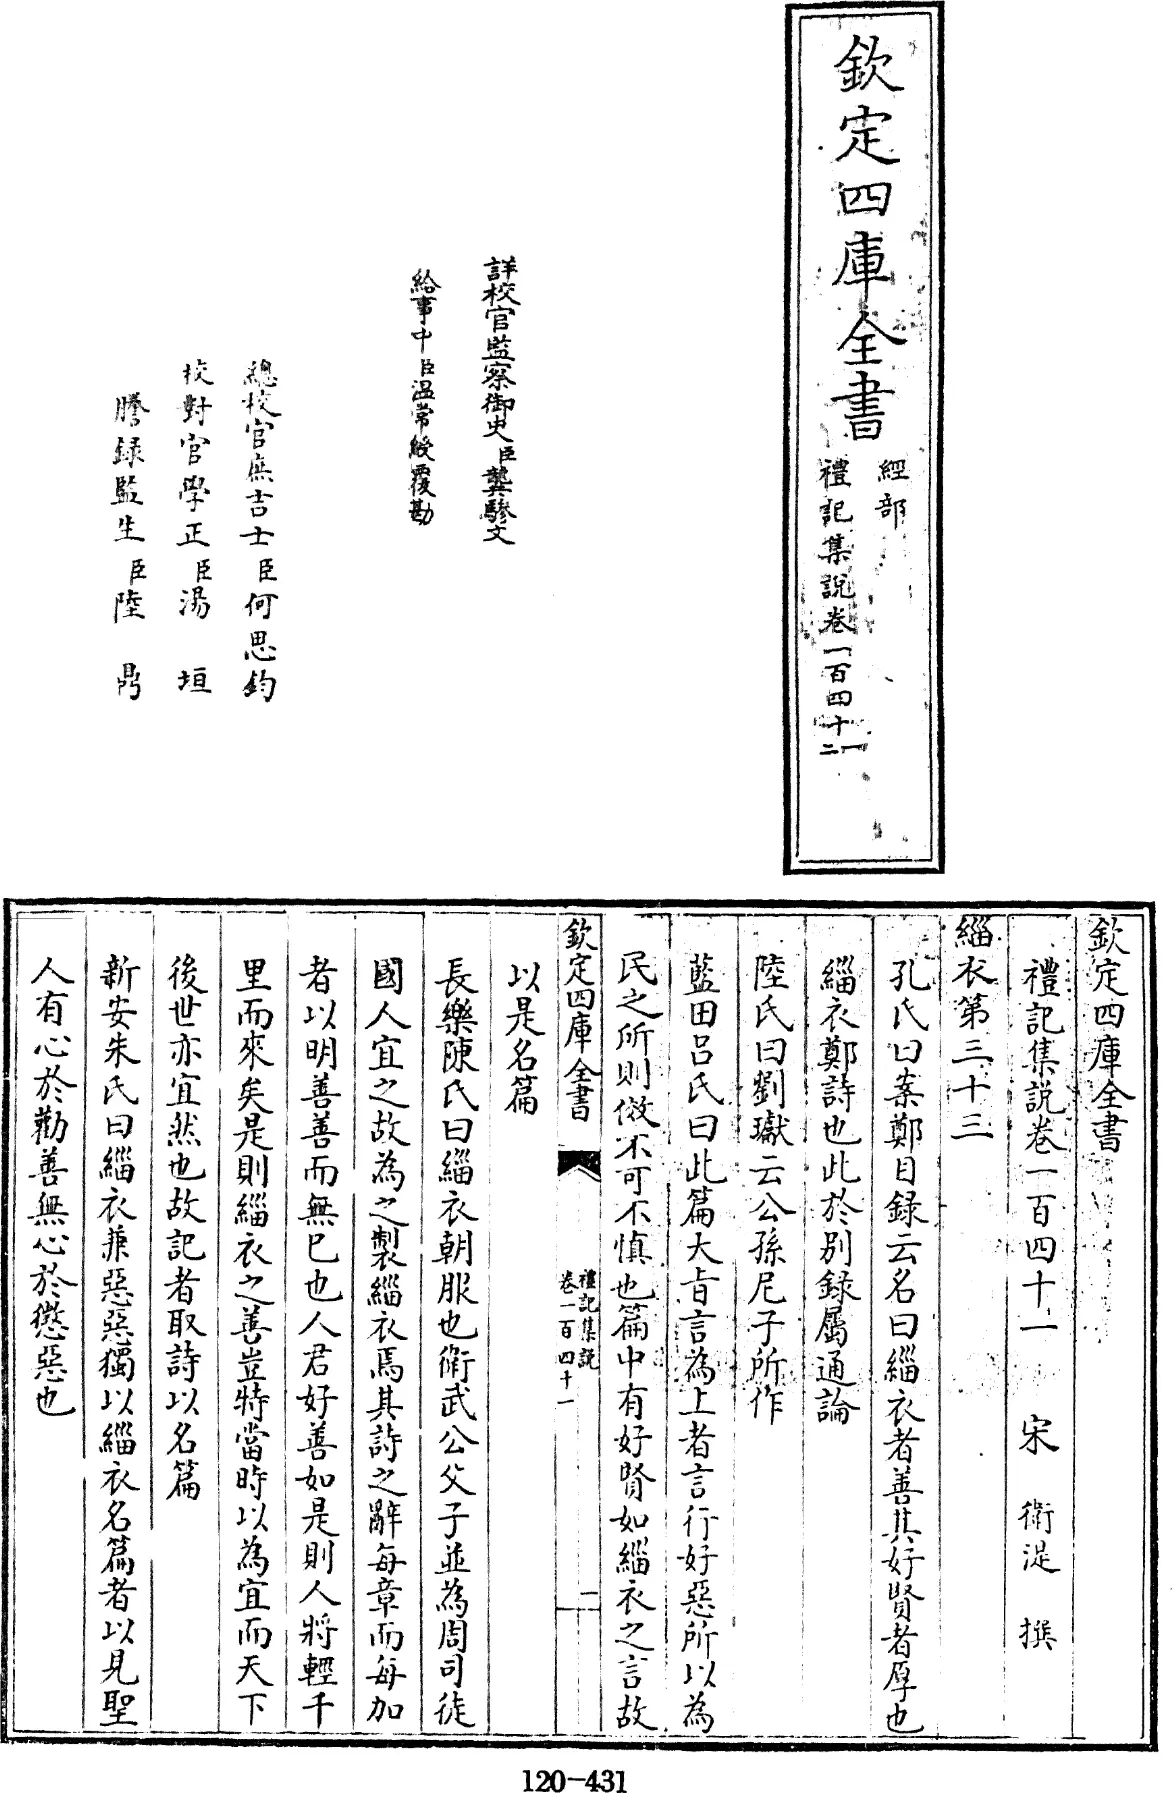 欽定四庫全書
經部
禮記集說卷一百四十一
二
詳校官監察御史臣龔驂文
給事中臣溫常綬覆勘
總校官庶吉士臣何思鈞
校對官學正臣湯垣
謄錄監生臣陸
欽定四庫全書
禮記集說卷一百四十一 宋 衛湜 撰
緇衣第三十三
孔氏曰案鄭目録云名曰緇衣者善其好賢者厚也
緇衣鄭詩也此於別録屬通論
陸氏曰劉瓛云公孫尼子所作
藍田呂氏曰此篇大㫖言為上者言行好惡所以為
民之所則傚不可不慎也篇中有好賢如緇衣之言故
欽定四庫全書
禮記集說
卷一百四十一
二
以是名篇
長樂陳氏曰緇衣朝服也衛武公父子並為周司徒
國人宜之故為之製緇衣焉其詩之辭每章而每加
者以明善善而無已也人君好善如是則人將輕千
里而來矣是則緇衣之善豈特當時以為宜而天下
後世亦宜然也故記者取詩以名篇
新安朱氏曰緇衣兼惡惡獨以緇衣名篇者以見聖
人有心於勸善無心於懲惡也
120-431